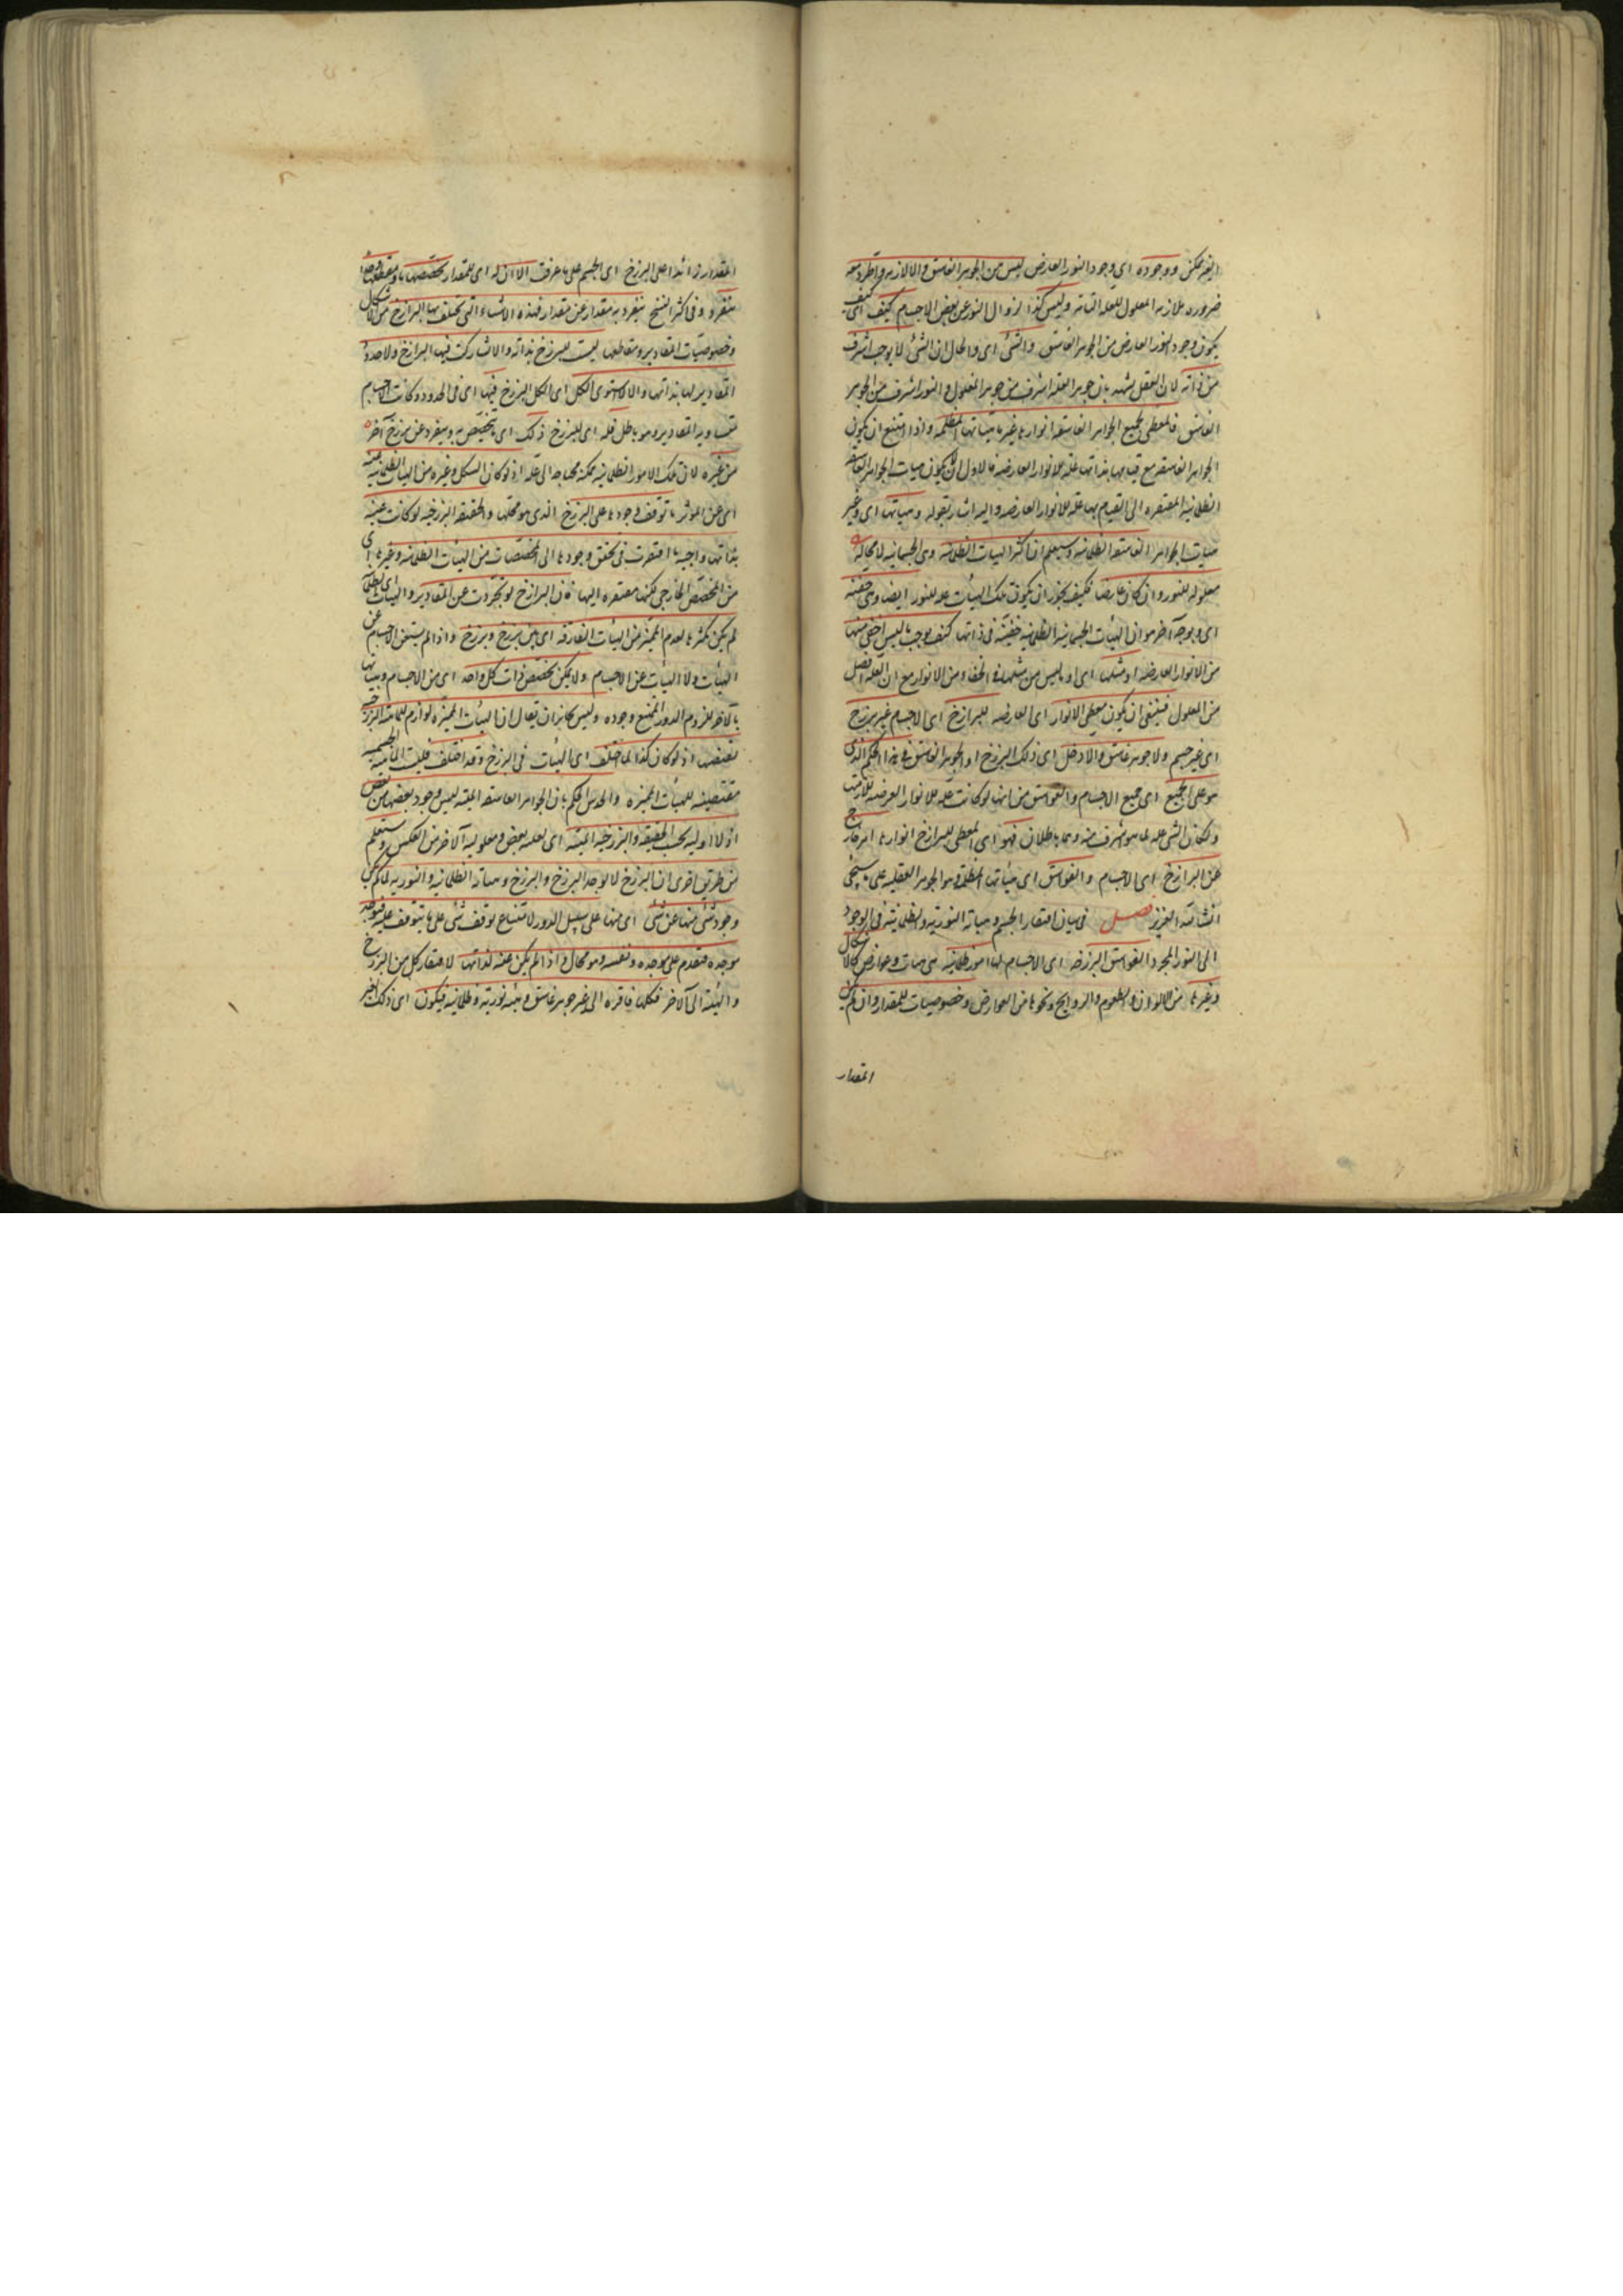 الغير ممكن ووجوده اى وجود النور العارض ليس من الجوهر الغاسق والا لازمه واطرد معه
ضرورة ملازمة المعلول للعلة التامة وليس كذا لزوال النور عن بعض الاجسام كيف اى كيف
يكون وجود النور العارض من الجوهر الغاسق والشئ اى والحال ان الشئ لا يوجب اشرف
من ذاته لان العقل يشهد بان جوهر العلة اشرف من جوهر المعلول والنور اشرف من الجوهر
الغاسق فالمعطى لجميع الجواهر الغاسقة انوارها غير ماهياتها المظلمة واذا امتنع ان يكون
الجواهر الغاسقة مع قيامها بذاتها علة للانوار العارضة فالاولى ان لا يكون هيات الجواهر الغاسقة
الظلمانية المفتقرة الى القيام بها علة للانوار العارضة واليه اشار بقوله وهياتها اى وغير
هيات الجواهر الغاسقة الظلمانية وسيعلم ان اكثر الهيات الظلمانية وهى الجسمانية لا محالة
معلولة للنور وان كان عارضا فكيف يجوز ان يكون تلك الهيئات علة للنور ايضا وهى خفية
اى وبوجه آخر هو ان الهيئات الجسمانية الظلمانية خفية فى ذاتها كيف يوجب ما ليس اخفى منها
من الانوار العارضة او مثلها اى او ما ليس من مثلها فى الخفاء من الانوار مع ان العلة افضل
من المعلول فينبغى ان يكون معطى الانوار اى العارضة للبرازخ اى الاجسام غير برزخ
اى غير جسم ولا جوهر غاسق والا دخل اى ذلك البرزخ او الجوهر الغاسق فى هذا الحكم الذى
هو على الجميع اى جميع الاجسام والغواسق من انها لو كانت علة للانوار العرضية للازمتها
ولكان الشئ علة لما هو اشرف منه وهما باطلان فهو اى المعطى للبرازخ انوارها امر خارج
عن البرازخ اى الاجسام والغواسق اى هيئاتها المظلمة وهو الجوهر العقلية على ما سيجئ
انشا الله العزيز فصل فى بيان افتقار الجسم وهياته النورية والظلمانية فى الوجود
الى النور المجرد الغواسق البرزخية اى الاجسام لها امور ظلمانية هى هيات وعوارض كالاشكال
وغيرها من الالوان والطعوم والروايح ونحوها من العوارض وخصوصيات للمقدار وان لم يكن
المقدار
المقدار زائدا على البرزخ اى الجسم على ما عرفت الا ان له اى للمقدار تخصصا ما ومقطعا وحدا
ينفرد وفى اكثر النسخ يتفرد به مقدار عن مقدار فهذه الاشياء التى تختلف بها البرازخ من الاشكال
وخصوصيات المقادير ومقاطعها ليست للبرزخ بذاته والا تشاركت فيها البرازخ ولا حدود
المقادير لها بذاتها والا لاستوى الكل اى الكل البرزخ فيها اى فى الحدود وكانت الاجسام
متساوية المقادير وهو باطل فله اى للبرزخ ذلك اى ما يتخصص به وينفرد عن برزخ آخر
من غيره لان تلك الامور الظلمانية ممكنة محتاجة الى علة اذ لو كان الشكل وغيره من الهيات الظلمانية غنية
اى عن المؤثر ما توقف وجودها على البرزخ الذى هو محلها والحقيقة البرزخية لو كانت غنية
بذاتها واجبة ما افتقرت فى تحقق وجودها الى المخصصات من الهيئات الظلمانية وغيرها اى
من المخصص الخارجى لكنها مفتقرة اليها فان البرازخ لو تجردت عن المقادير والهيات اى الظلمانية
لم يكن تكثرها لعدم المميز من الهيئات الفارقة اى بين برزخ وبرزخ واذا لم يستغن الاجسام عن
الهيئات ولا الهيئات عن الاجسام ولا يمكن تخصص ذات كل واحد اى من الاجسام وهيئاتها
بالآخر للزوم الدور الممتنع وجوده وليس بجائز ان يقال ان الهيئات المميزة لوازم للماهية البرزخية
تقتضيها اذ لو كان كذا لما اختلف اى الهيئات فى البرزخ وقد اختلف فليست الماهية الجسمية
مقتضية للهيئات المميزة والحدس يحكم بان الجواهر الغاسقة الميتة ليس وجود بعضها من بعض
اذ لا اولية بحسب الحقيقة البرزخية الميتة اى لعلية بعض ومعلولية الآخر من العكس وستعلم
من طريق اخرى ان البرزخ لا يوجد البرزخ والبرزخ وهياته الظلمانية والنورية لما لم يكن
وجود شئ منها عن شئ اى منها على سبيل الدور لامتناع توقف شئ على ما يتوقف عليه فيوجد
موجده فيتقدم على موجده ونفسه وهو محال واذ لم يكن غنية لذاتها لافتقار كل من البرزخ
والهيئة الى الآخر فكلها فاقرة الى غير جوهر غاسق وهيئة نورية وظلمانية فيكون اى ذلك الغير